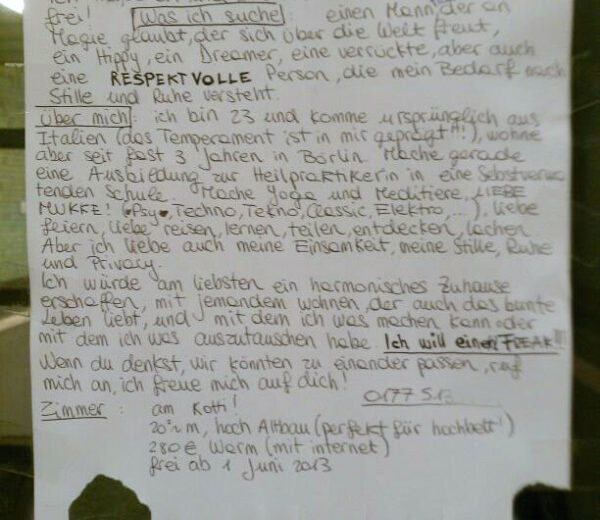 frei! Was ich suche: einen Mann, der an
Magie glaubt, der sich über die Welt freut,
ein Hippy, ein Dreamer, eine verrückte, aber auch
eine RESPEKTVOLLE Person, die mein Bedarf nach
Stille und Ruhe versteht.
über mich: ich bin 23 und komme ursprünglich aus
Italien (das Temperament ist in mir geprägt!!!), wohne
aber seit fast 3 Jahren in Börlin. Mache gerade
eine Ausbiedung zur Heilpraktikerin in eine Selbstverwa
tenden Schule. Mache Yoga und Meditiere, LIEBE
MUKKE! (Psy, Techno, Tekno, Classic, Elektro...), liebe
feiern, liebe reisen, lernen, teilen, entdecken, lachen
Aber ich liebe auch meine Einsamkeit, meine Stille, Ruhe
und Privacy.
Ich würde am liebsten ein harmonisches Zuhause
erschaffen, mit jemandem wohnen, der auch das bunte
Leben liebt, und mit dem ich was machen kann oder
mit dem ich was auszutauschen habe. Ich will einen FREAK!!!
Wenn du denkst, wir könnten zu einander passen, ruf
mich an, ich freue mich auf dich!
0177 513
Zimmer: am Kotti!
20 m, hoch Altbau (perfekt für hochbett!)
280€ Warm (mit internet)
frei ab 1 Juni 2013